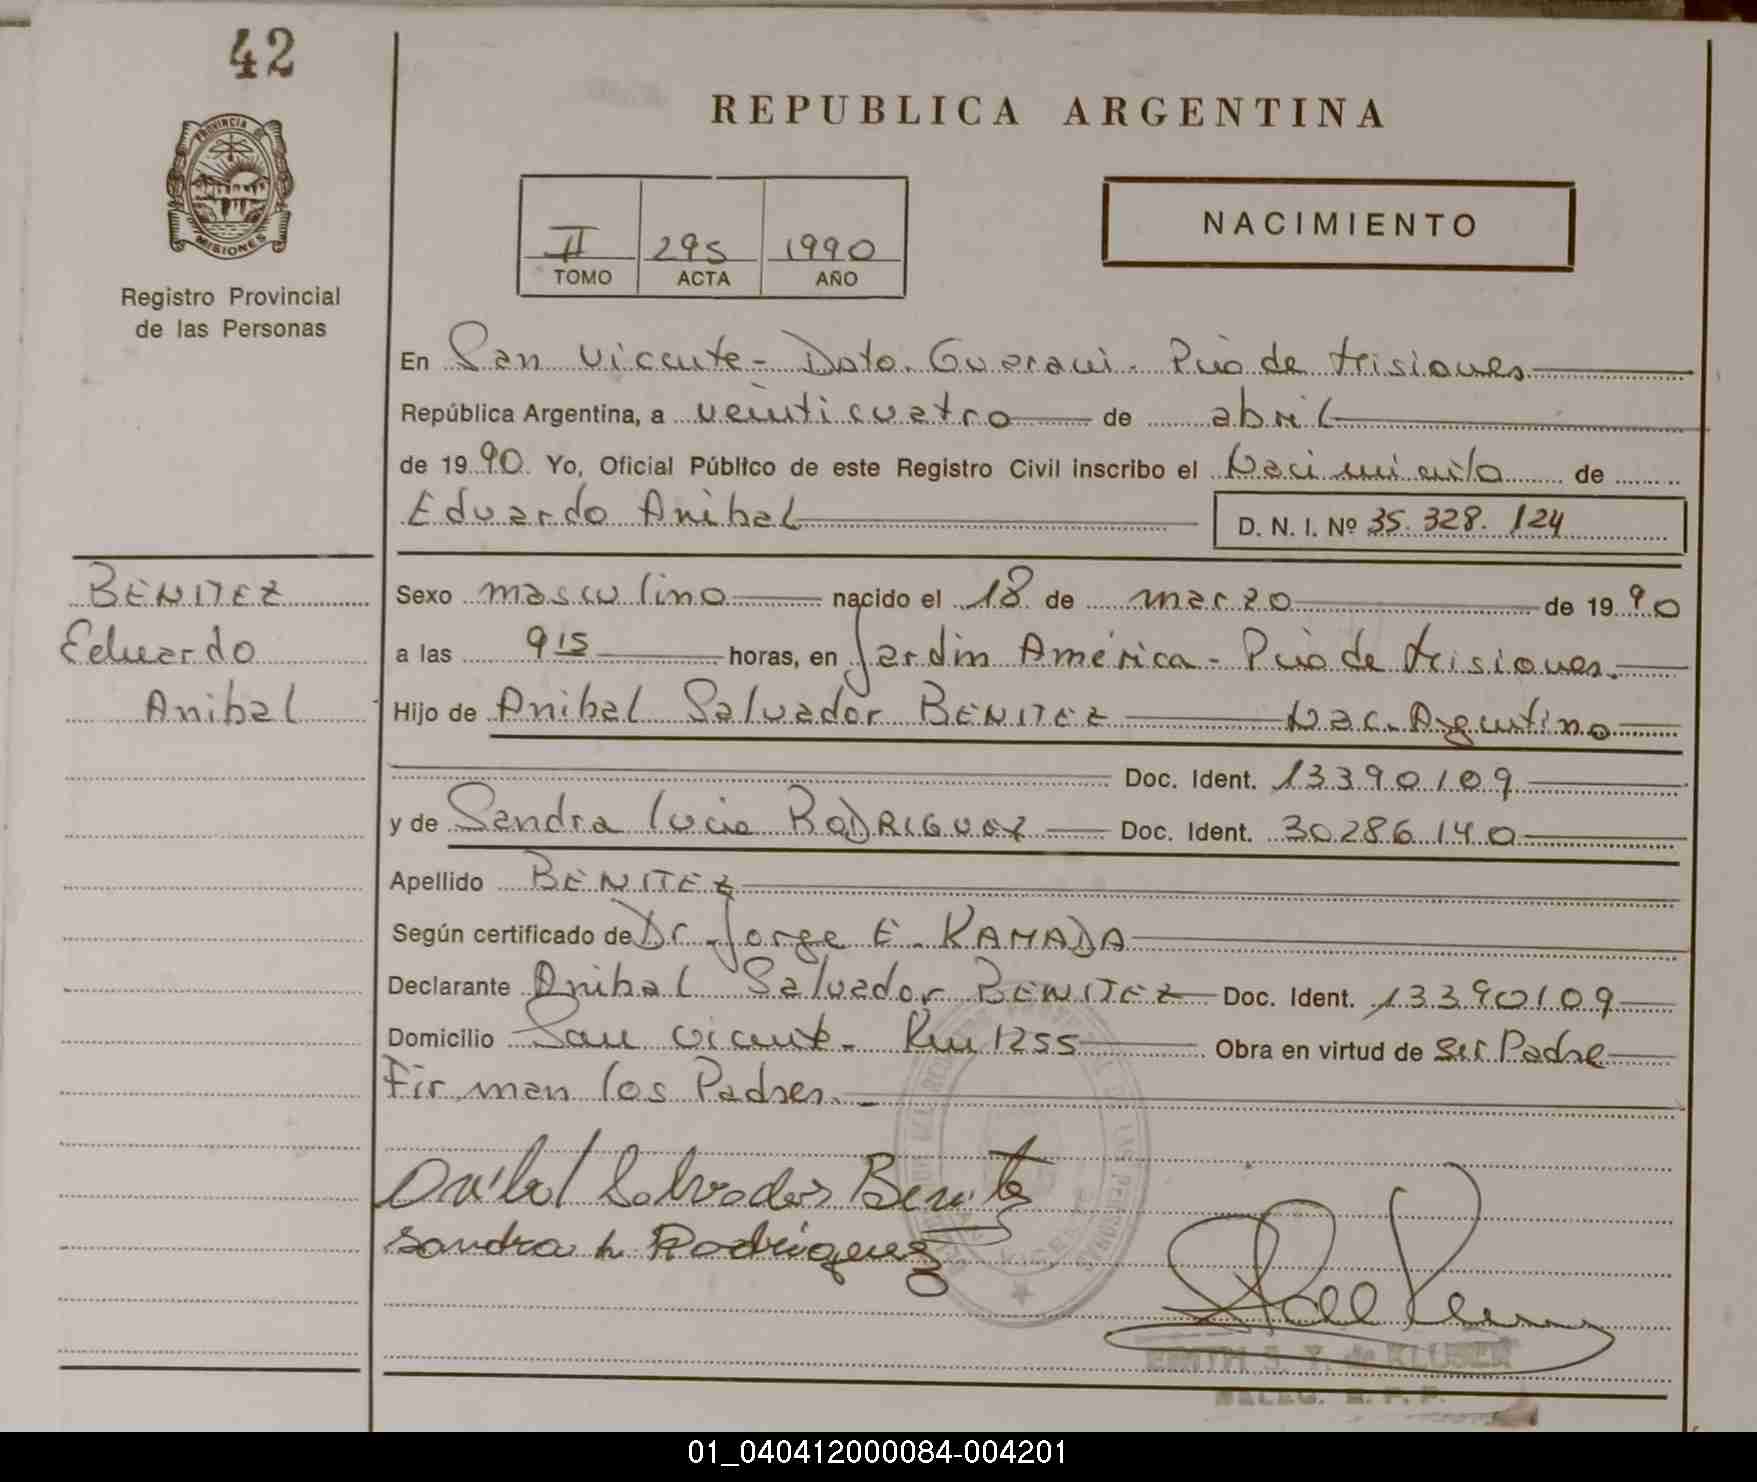 42
PROVINCIA DE
MISIONES
Registro Provincial
de las Personas
REPUBLICA ARGENTINA
II 295 1990
TOMO ACTA AÑO
NACIMIENTO
En San Vicente - Dpto. Guarani - Pcia de Misiones
República Argentina, a veinticuatro de abril
de 1990 Yo, Oficial Público de este Registro Civil inscribo el Nacimiento de
Eduardo Anibal D. N. I. Nº 35.328.124
BENITEZ
Eduardo
Anibal
Sexo masculino nacido el 18 de marzo de 1990
a las 9 15 horas, en Jardin América - Pcia de Misiones.
Hijo de Anibal Salvador BENITEZ Nac. Argentino
Doc. Ident. 13390109
y de Sandra Lucia RODRIGUEZ Doc. Ident. 30286140
Apellido BENITEZ
Según certificado de Dr. Jorge E. KAMADA
Declarante Anibal Salvador BENITEZ Doc. Ident. 13390109
Domicilio San Vicente - Km 1255 Obra en virtud de ser Padre
Firman los Padres. -
Anibal Salvador Benitez
Sandra L Rodriguez
EDITH S. Y. de KLUSER
DELEG. R. P. P.
01_040412000084-004201